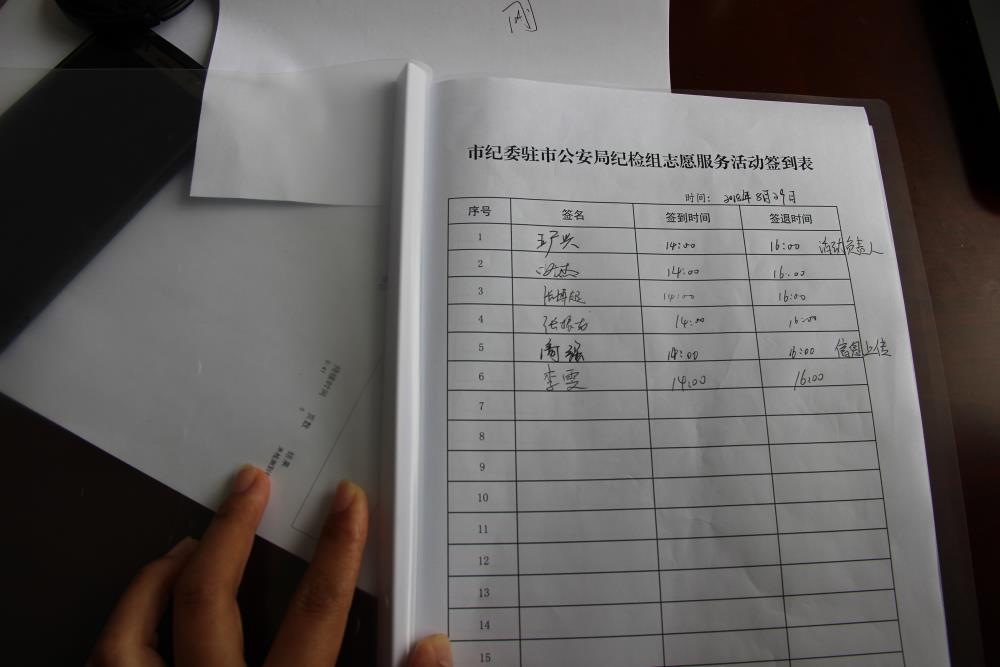 刚
市纪委驻市公安局纪检组志愿服务活动签到表
时间： 2018年8月29日
序号 签名 签到时间 签退时间
1 14:00 16:00 活动负责人
2 14:00 16:00
3 14:00 16:00
4 张振吉 14:00 16:00
5 周强 14:00 16:00 信息上传
6 李雯 14:00 16:00
7
8
9
10
11
12
13
14
15
持续时间
页数
结果